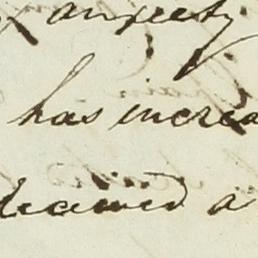 anxiety
has increa
deceived a